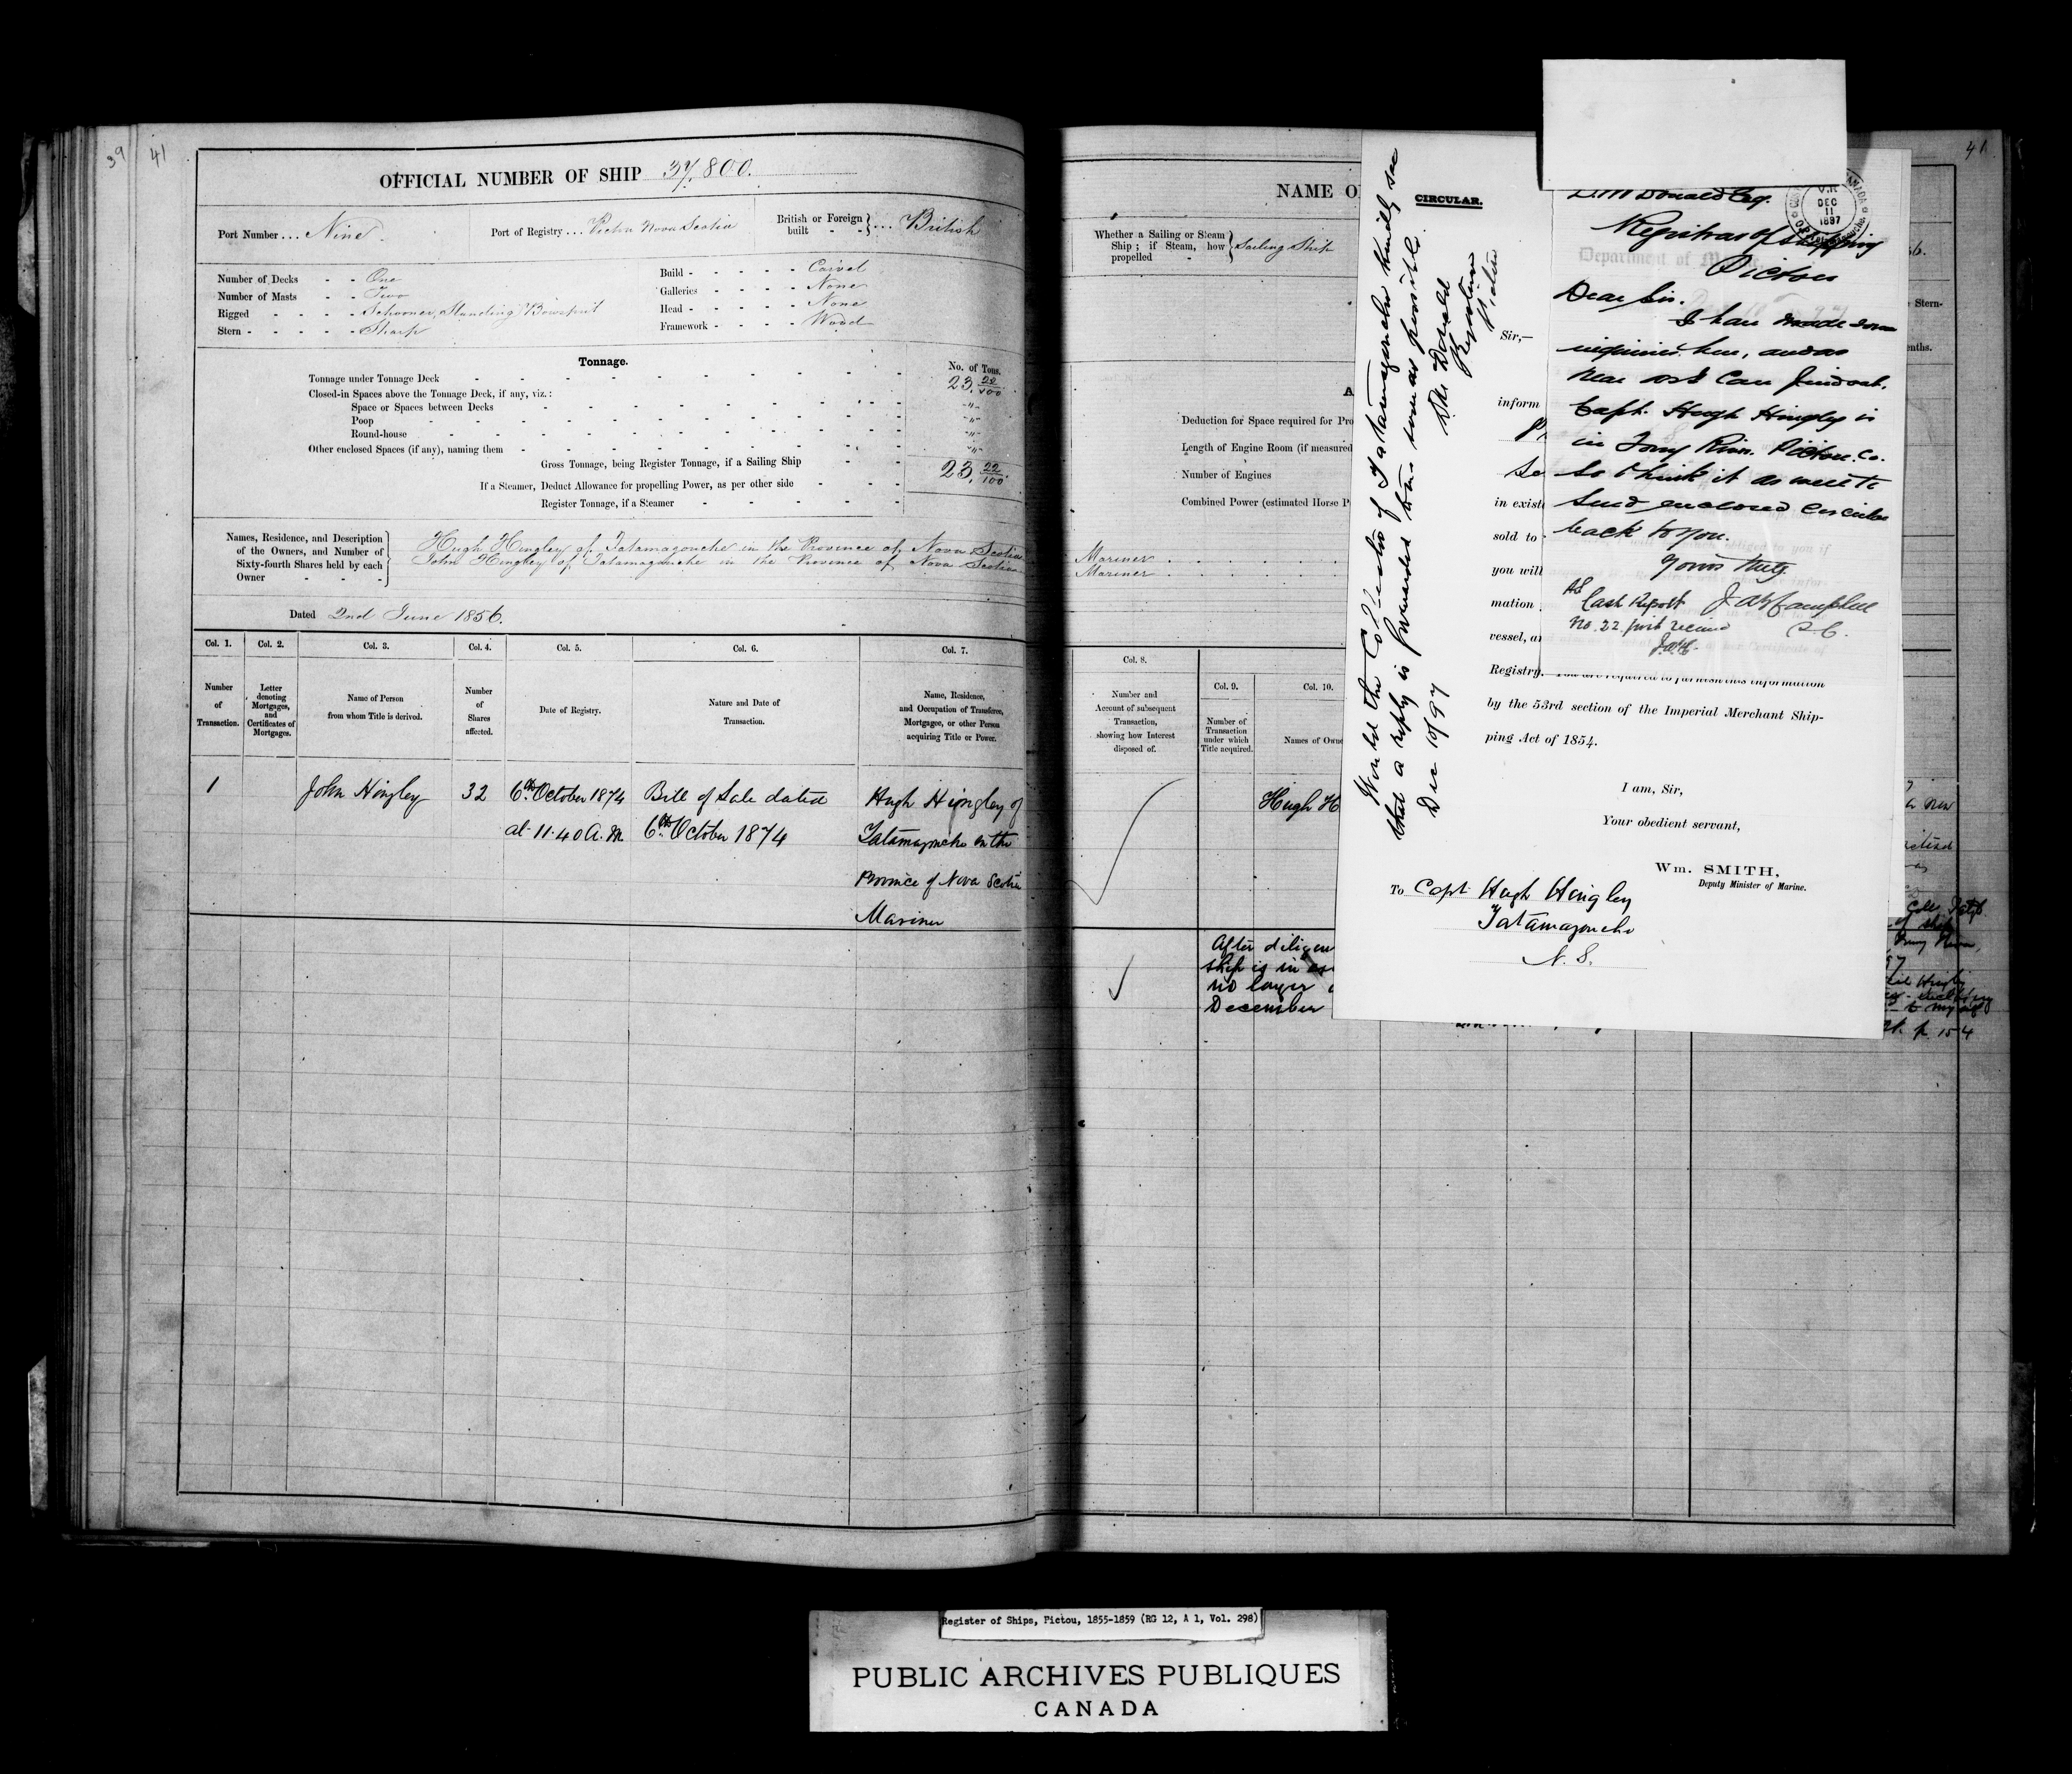 39 41
OFFICIAL NUMBER OF SHIP 37,800.
Port Number ... Nine.
Port of Registry ... Pictou Nova Scotia
British or Foreign built - - } ... British
Number of Decks - - One
Number of Masts - - Two
Rigged - - - - Schooner, Standing Bowsprit
Stern - - - - - Sharp
Build - - - - - Carvel
Galleries - - - - None
Head - - - - - None
Framework - - - - Wood
Tonnage.
No. of Tons.
Tonnage under Tonnage Deck 23, 22/100
Closed-in Spaces above the Tonnage Deck, if any, viz.:
Space or Spaces between Decks - "
Poop - "
Round-house - "
Other enclosed Spaces (if any), naming them - "
Gross Tonnage, being Register Tonnage, if a Sailing Ship 23, 22/100
If a Steamer, Deduct Allowance for propelling Power, as per other side
Register Tonnage, if a Steamer
Names, Residence, and Description
of the Owners, and Number of
Sixty-fourth Shares held by each
Owner
Hugh Hingley of Tatamagouche in the Province of Nova Scotia
John Hingley of Tatamagouche in the Province of Nova Scotia
Dated 2nd June 1856.
Col. 1. Col. 2. Col. 3. Col. 4. Col. 5. Col. 6. Col. 7.
Number of Transaction.
Letter denoting Mortgages, and Certificates of Mortgages.
Name of Person from whom Title is derived.
Number of Shares affected.
Date of Registry.
Nature and Date of Transaction.
Name, Residence, and Occupation of Transferee, Mortgagee, or other Person acquiring Title or Power.
1 John Hingley 32 6th October 1874 Bill of Sale dated Hugh Hingley of
at 11.40 A.M. 6th October 1874 Tatamagouche in the
Province of Nova Scotia
Mariner
41
NAME O
Whether a Sailing or Steam
Ship; if Steam, how
propelled - } Sailing Ship
Deduction for Space required for Pro
Length of Engine Room (if measured
Number of Engines
Combined Power (estimated Horse P
Mariner
Mariner
Col. 8.
Number and Account of subsequent Transaction, showing how Interest disposed of.
Col. 9.
Number of Transaction under which Title acquired.
Col. 10.
Names of Owne
Hugh H
After diligen
ship is in
no longer
December
Stern-
nths.
p. 154
CIRCULAR.
Would the Collector of Tatamagouche kindly see
that a reply is forwarded soon as possible.
Dec 10/97
D. McDonald
Registrar
Pictou
Sir,—
inform
in exist
sold to
you will
mation
vessel, a
Registry.
by the 53rd section of the Imperial Merchant Ship-
ping Act of 1854.
I am, Sir,
Your obedient servant,
Wm. SMITH,
Deputy Minister of Marine.
To Capt Hugh Hingley
Tatamagouche
N. S.
D. McDonald Esq.
DEC
11
1897
Registrar of Shipping
Pictou
Dear Sir.
I have made some
inquiries here, and as
near as I can find out.
Capt. Hugh Hingley is
in Tony River. Pictou. Co.
so think it as well to
send enclosed Circular
back to you.
Yours Truly
Cash Report
No. 22 just received
Campbell
Register of Ships, Pictou, 1855-1859 (RG 12, A 1, Vol. 298)
PUBLIC ARCHIVES PUBLIQUES
CANADA